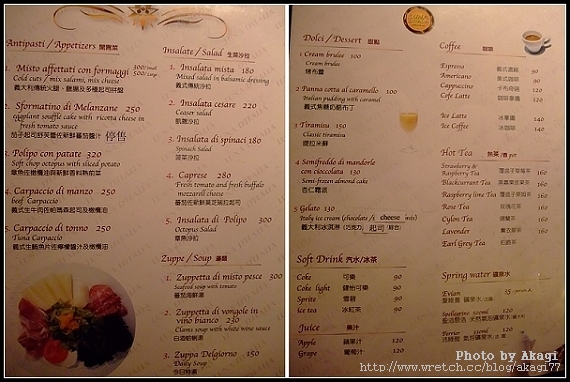 Antipasti / Appetizers 開胃菜
1. Misto affettati con formaggi 300/Small 500/Large
Cold cuts / mix salami, mix cheese
義大利傳統火腿、臘腸及多種起司拼盤
2. Sformatino di Melanzane 250
eggplant souffle cake with ricotta cheese in
fresh tomato sauce
茄子起司舒芙蕾佐新鮮蕃茄醬汁 停售
3. Polipo con patate 320
Soft chop octopus with sliced potato
章魚佐襯新鮮香料熱前菜
4. Carpaccio di manzo 250
beef Carpaccio
5. Carpaccio di tonno 250
Tuna Carpaccio
Insalate / Salad 生菜沙拉
1. Insalata mista 180
Mixed salad in balsamic dressing
義式傳統沙拉
2. Insalata cesare 220
Ceaser salad
凱薩沙拉
3. Insalata di spinaci 180
Spinach Salad
菠菜沙拉
4. Caprese 280
Fresh tomato and fresh buffalo
mozzarell cheese
5. Insalata di Polipo 300
Octopus Salad
章魚沙拉
Zuppe / Soup 湯類
1. Zuppetta di misto pesce 300
Seafood soup with tomato
蕃茄海鮮湯
2. Zuppetta di vongole in
vino bianco 230
Clams soup with white wine sauce
白酒蛤蜊湯
3. Zuppa Delgiorno 150
Daily Soup
今日特湯
Dolci / Dessert 甜點
1 Cream brulee 100
Cream brulee
烤布蕾
2 Panna cotta al caramello 100
Italian pudding with caramel
義式焦糖奶酪布丁
3 Tiramisu 150
Classic tiramisu
提拉米蘇
4 Semifreddo di mandorle
con cioccolata 130
Semi-frozen almond cake
杏仁霜派
5 Gelato 130
Italy ice cream (chocolate / cheese mix)
義大利冰淇淋 (巧克力 / 起司 / 綜合)
Soft Drink 汽水/冰茶
Coke 可樂 90
Coke light 健怡可樂 90
Sprite 雪碧 90
Ice tea 冰紅茶 90
Juice 果汁
Apple 蘋果汁 120
Grape 葡萄汁 120
Coffee 咖啡
Espresso 義式濃縮 90
Americano 美式咖啡 90
Cappuccino 卡布奇諾 120
Cafe Latte 咖啡拿鐵 120
Ice Latte 冰拿鐵 140
Ice Coffee 冰咖啡 140
Hot Tea 熱茶 /壺 pot
Strawberry &
Raspberry Tea 160
Blackcurrant Tea 160
Raspberry lime Tea 160
Rose Tea 玫瑰花茶 160
Cylon Tea 錫蘭茶 160
Lavender 薰衣草茶 160
Earl Grey Tea 伯爵茶 160
Spring water 礦泉水
Evian 35
120
Perrier 120
Photo by Akagi
http://www.wretch.cc/blog/akagi77